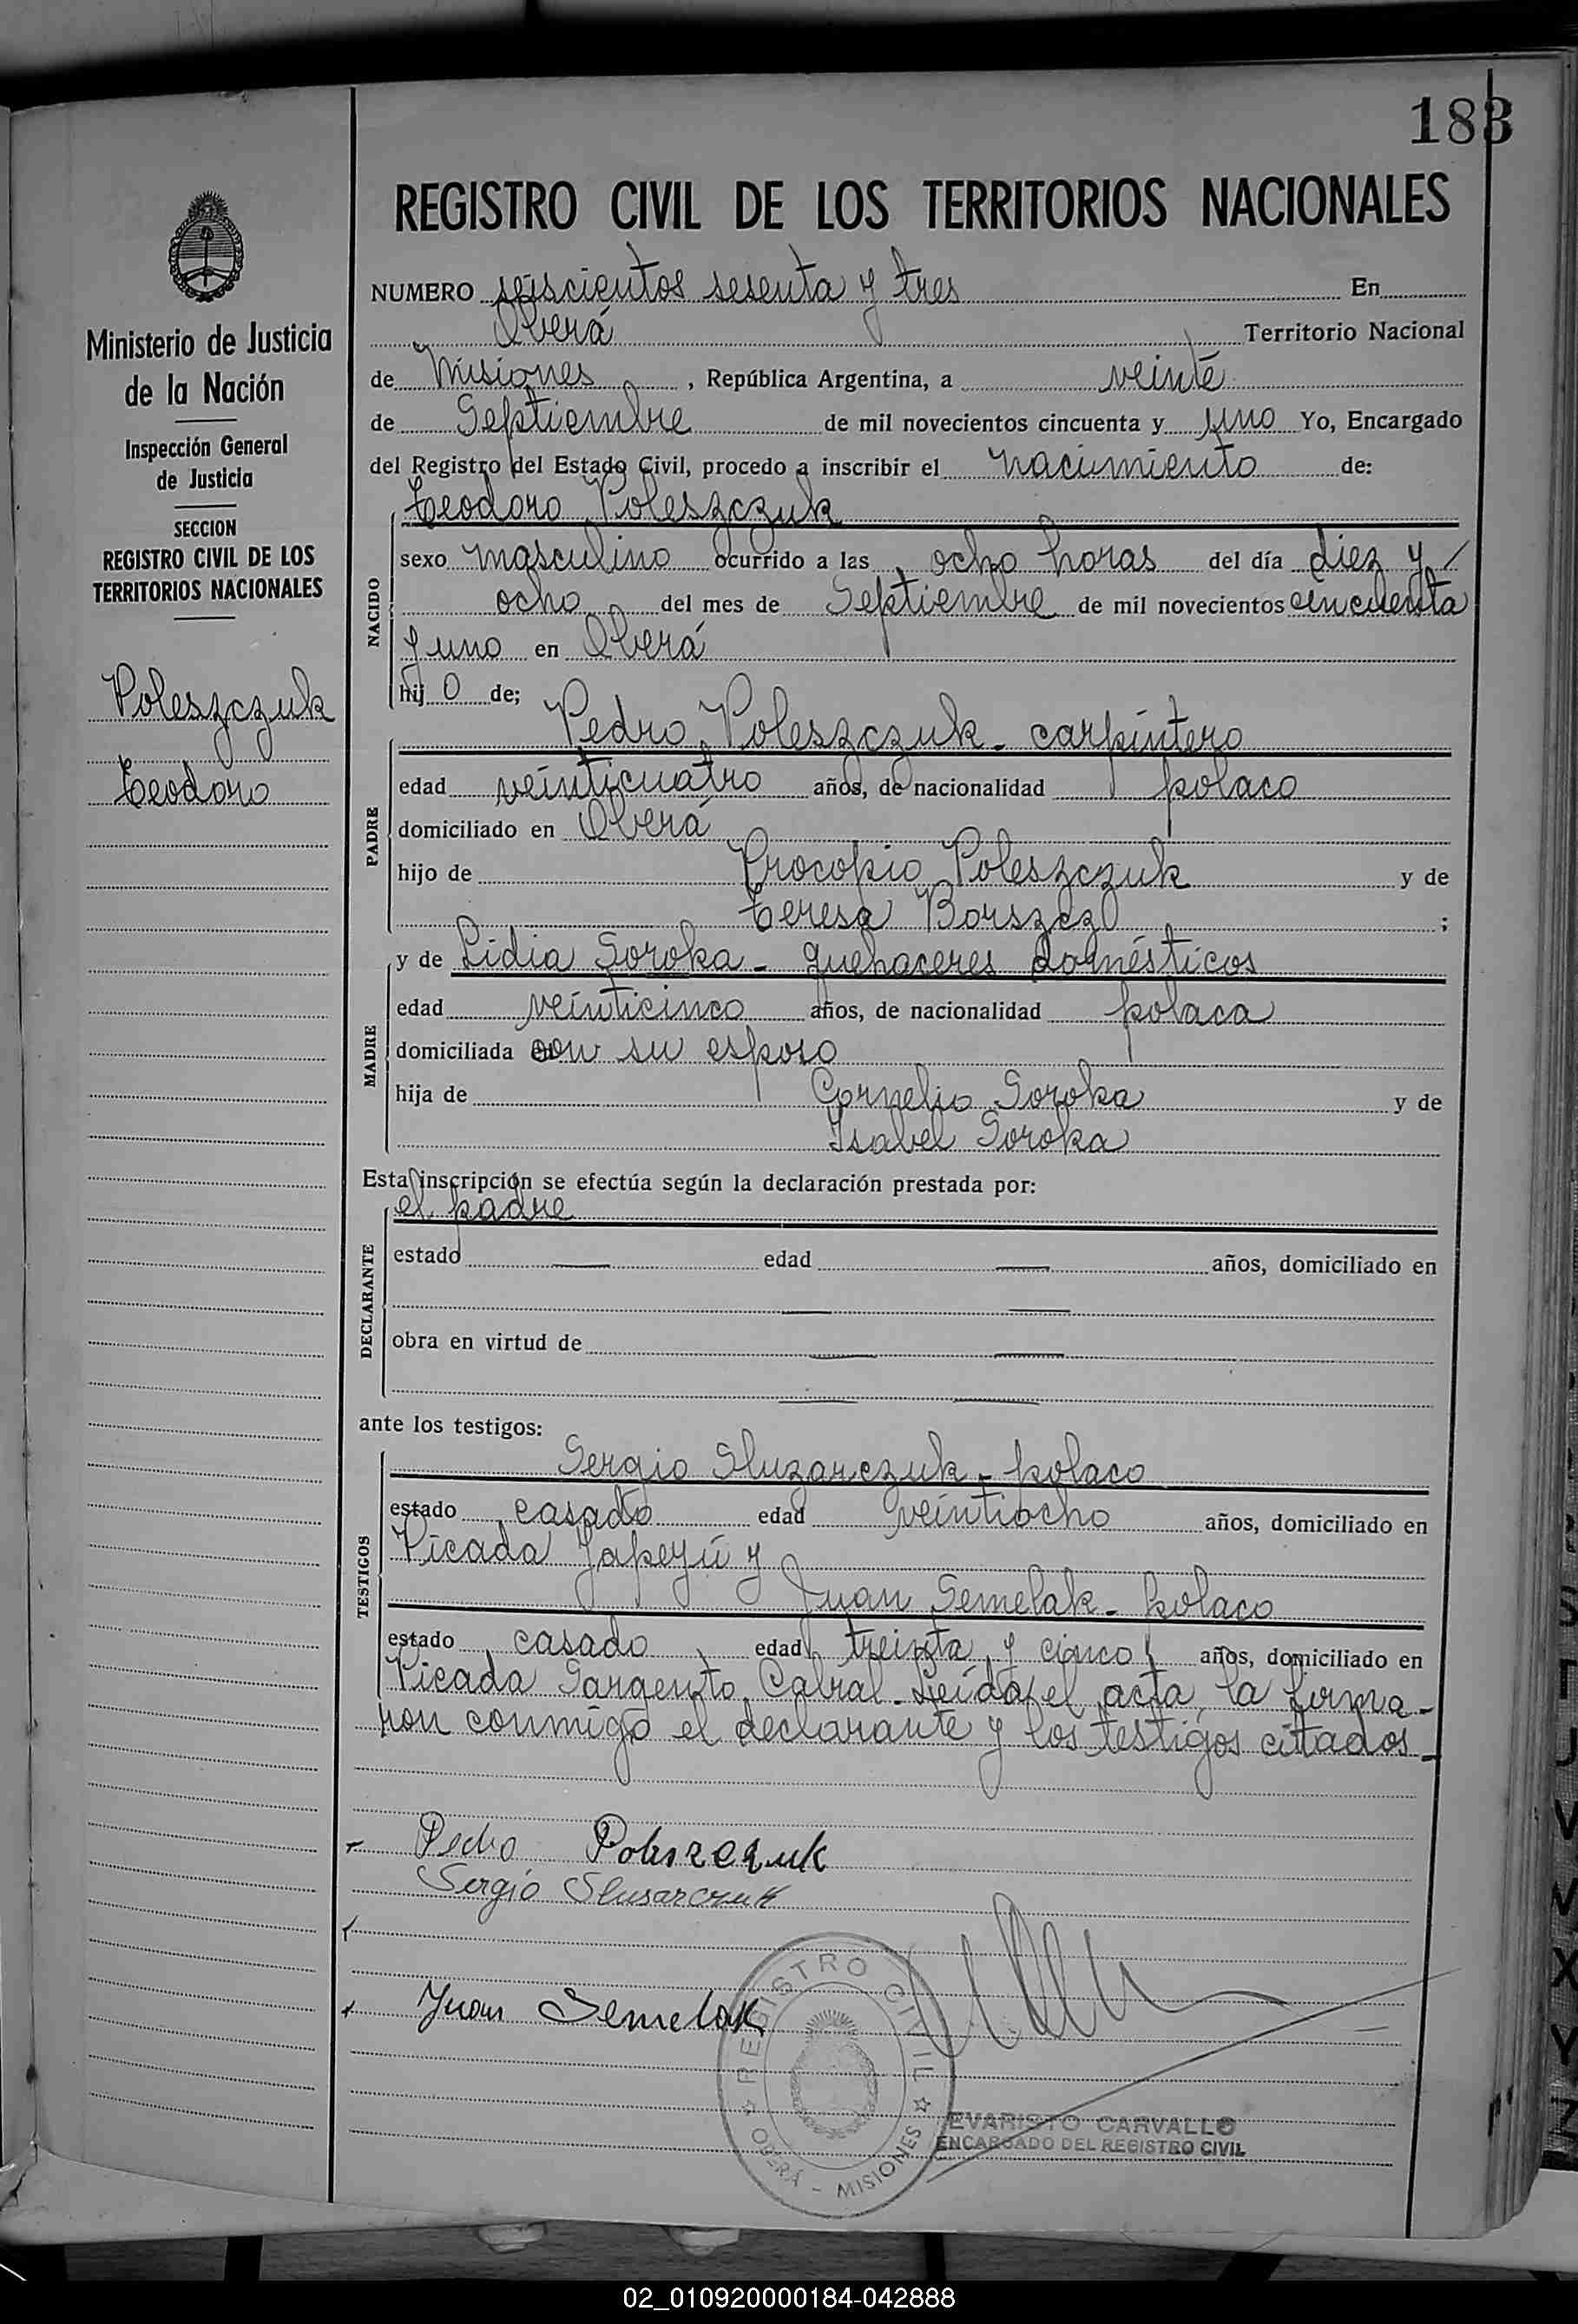 183
REGISTRO CIVIL DE LOS TERRITORIOS NACIONALES
Ministerio de Justicia
de la Nación
Inspección General
de Justicia
SECCION
REGISTRO CIVIL DE LOS
TERRITORIOS NACIONALES
Poleszczuk
Teodoro
NUMERO seiscientos sesenta y tres En
Oberá Territorio Nacional
de Misiones, República Argentina, a veinte
de Septiembre de mil novecientos cincuenta y uno Yo, Encargado
del Registro del Estado Civil, procedo a inscribir el nacimiento de:
Teodoro Poleszczuk
NACIDO
sexo masculino ocurrido a las ocho horas del día diez y
ocho del mes de Septiembre de mil novecientos cincuenta
y uno en Oberá
hijo de;
Pedro Poleszczuk - carpintero
PADRE
edad veinticuatro años, de nacionalidad polaco
domiciliado en Oberá
hijo de Procopio Poleszczuk y de
Teresa Borszcz ;
y de Lidia Soroka - quehaceres domésticos
MADRE
edad veinticinco años, de nacionalidad polaca
domiciliada con su esposo
hija de Cornelio Soroka y de
Isabel Soroka
Esta inscripción se efectúa según la declaración prestada por:
el padre
DECLARANTE
estado — edad — años, domiciliado en
— —
obra en virtud de — —
— —
ante los testigos:
Sergio Sluzarczuk - polaco
TESTIGOS
estado casado edad veintiocho años, domiciliado en
Picada Yapeyú y
Juan Semelak - polaco
estado casado edad treinta y cinco años, domiciliado en
Picada Sargento Cabral. Leída el acta, la firma-
ron conmigo el declarante y los testigos citados -
Pedro Poleszczuk
Sergio Slusarczuk
Juan Semelak
REGISTRO CIVIL
OBERÁ - MISIONES
EVARISTO CARVALLO
ENCARGADO DEL REGISTRO CIVIL
02_010920000184-042888